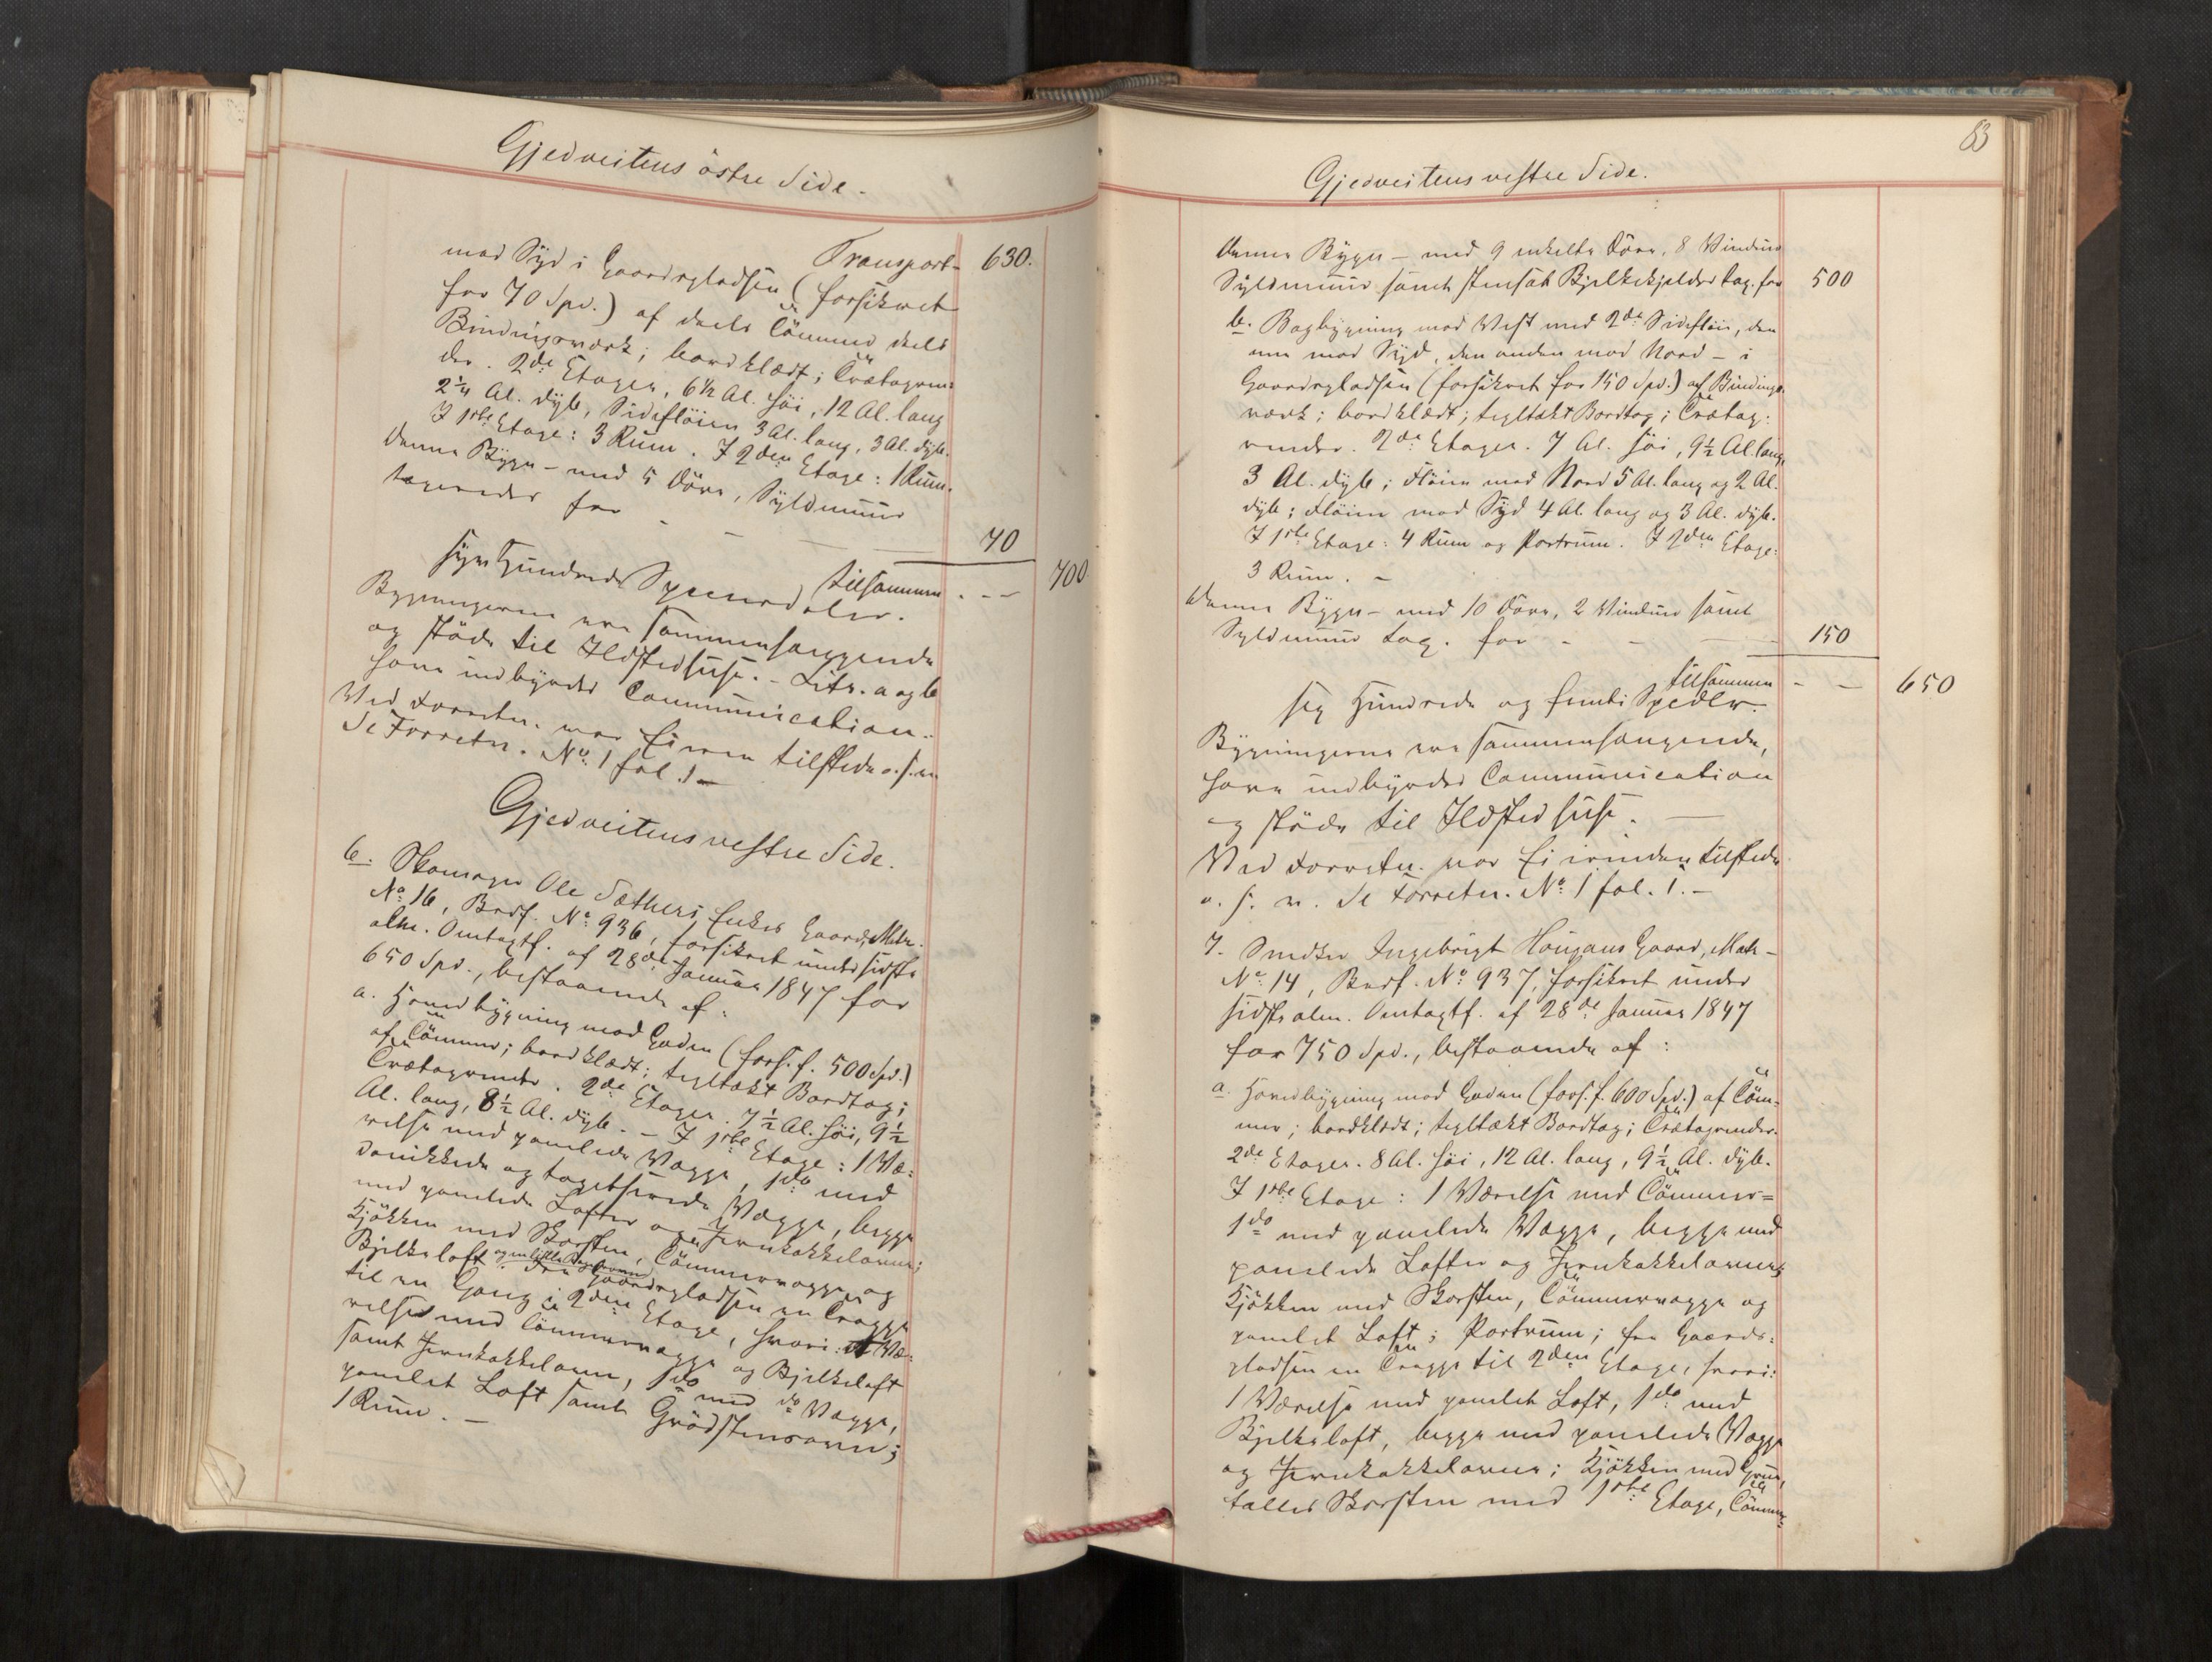 Gjedveitens östre Side.
Transport- 630.
mod Syd i Gaardspladsen (forsikret
for 70 Spd.) af deels Tömmer deels
Bindingsværk; bordklædt; Trætagren-
der. 2de Etager, 6½ Al. höi, 12 Al. lang
2¼ Al. dyb, Sidefløien 3 Al. lang, 3 Al. dyb.
I 1ste Etage: 3 Rum. I 2den Etage: 1 Rum.
Denne Bygn- med 5 Döre, Syldmuur
taxeredes for - - - 70
tilsammen - - - 700
Syv Hundrede Speciedaler.
Bygningerne ere sammenhængende
og støde til Ildstedhuse. - Litr. a og b
have indbyrdes Communication.
Ved Forretn. var Eieren tilstede o. s. v.
Se Forretn. No 1 fol. 1 -
Gjedveitens vestre Side.
6. Skomager Ole Sæthers Enkes Gaard, Matr.
No 16, Brdf. No 936, forsikret under sidste
alm. Omtaxtf. af 28de Januar 1847 for
650 Spd., bestaaende af:
a. Hovedbygning mod Gaden (fors. f. 500 Spd.)
af Tömmer; bordklædt; tegltækt Bordtag;
Trætagrender. 2de Etager. 7½ Al. höi, 9½
Al. lang, 8½ Al. dyb. - I 1ste Etage: 1 Væ-
relse med panelede Vægge, 1 do med
panelede og tapetserede Vægge, begge
med panelede Lofter og Jernkakkelovne;
Kjökken med Skorsten, Tömmervægge og
Bjelkeloft og en liden . Fra Gaardspladsen en Trappe
til en Gang i 2den Etage, hvori: 1 Væ-
relse med Tömmervægge og Bjelkeloft
samt Jernkakkelovn, 1 do med do Vægge,
panelet Loft samt Grödstensovn;
1 Rum. -
83
Gjedveitens vestre Side.
Denne Bygn- med 9 enkelte Döre, 8 Vinduer
Syldmuur samt stensat Bjelkekjelder tax. for 500
b. Bagbygning mod Vest med 2de Sidefløie, den
ene mod Syd, den anden mod Nord - i
Gaardspladsen (forsikret for 150 Spd.) af Bindings-
værk; bordklædt; tegltækt Bordtag; Trætag-
render. 2de Etager. 7 Al. höi, 9½ Al. lang,
3 Al. dyb; Fløien mod Nord 5 Al. lang og 2 Al.
dyb; Fløien mod Syd 4 Al. lang og 3 Al. dyb.
I 1ste Etage: 4 Rum og Portrum. I 2den Etage:
3 Rum. -
Denne Bygn- med 10 Döre, 2 Vinduer samt
Syldmuur tax. for - - - 150
tilsammen - - 650
Sex Hundrede og femti Spedlr.
Bygningerne ere sammenhængende,
have indbyrdes Communication
og støde til Ildstedhuse. -
Ved Forretn. var Eierinden tilstede
o. s. v. Se Forretn. No 1 fol. 1. -
7. Snedker Ingebrigt Hougans Gaard, Matr-
No 14, Brdf. No 937, forsikret under
sidste alm. Omtaxtf. af 28de Januar 1847
for 750 Spd., bestaaende af:
a. Hovedbygning mod Gaden (fors. f. 600 Spd.) af Töm-
mer; bordklædt; tegltækt Bordtag; Trætagrender.
2de Etager. 8 Al. höi, 12 Al. lang, 9½ Al. dyb.
I 1ste Etage: 1 Værelse med Tömmer-
1 do med panelede Vægge, begge med
panelede Lofter og Jernkakkelovne;
Kjökken med Skorsten, Tömmervægge og
panelet Loft; Portrum; fra Gaards-
pladsen en Trappe til 2den Etage, hvori:
1 Værelse med panelet Loft, 1 do med
Bjelkeloft, begge med panelede Vægge
og Jernkakkelovne; Kjökken med Grue,
fælles Skorsten med 1ste Etage, Tömmer-